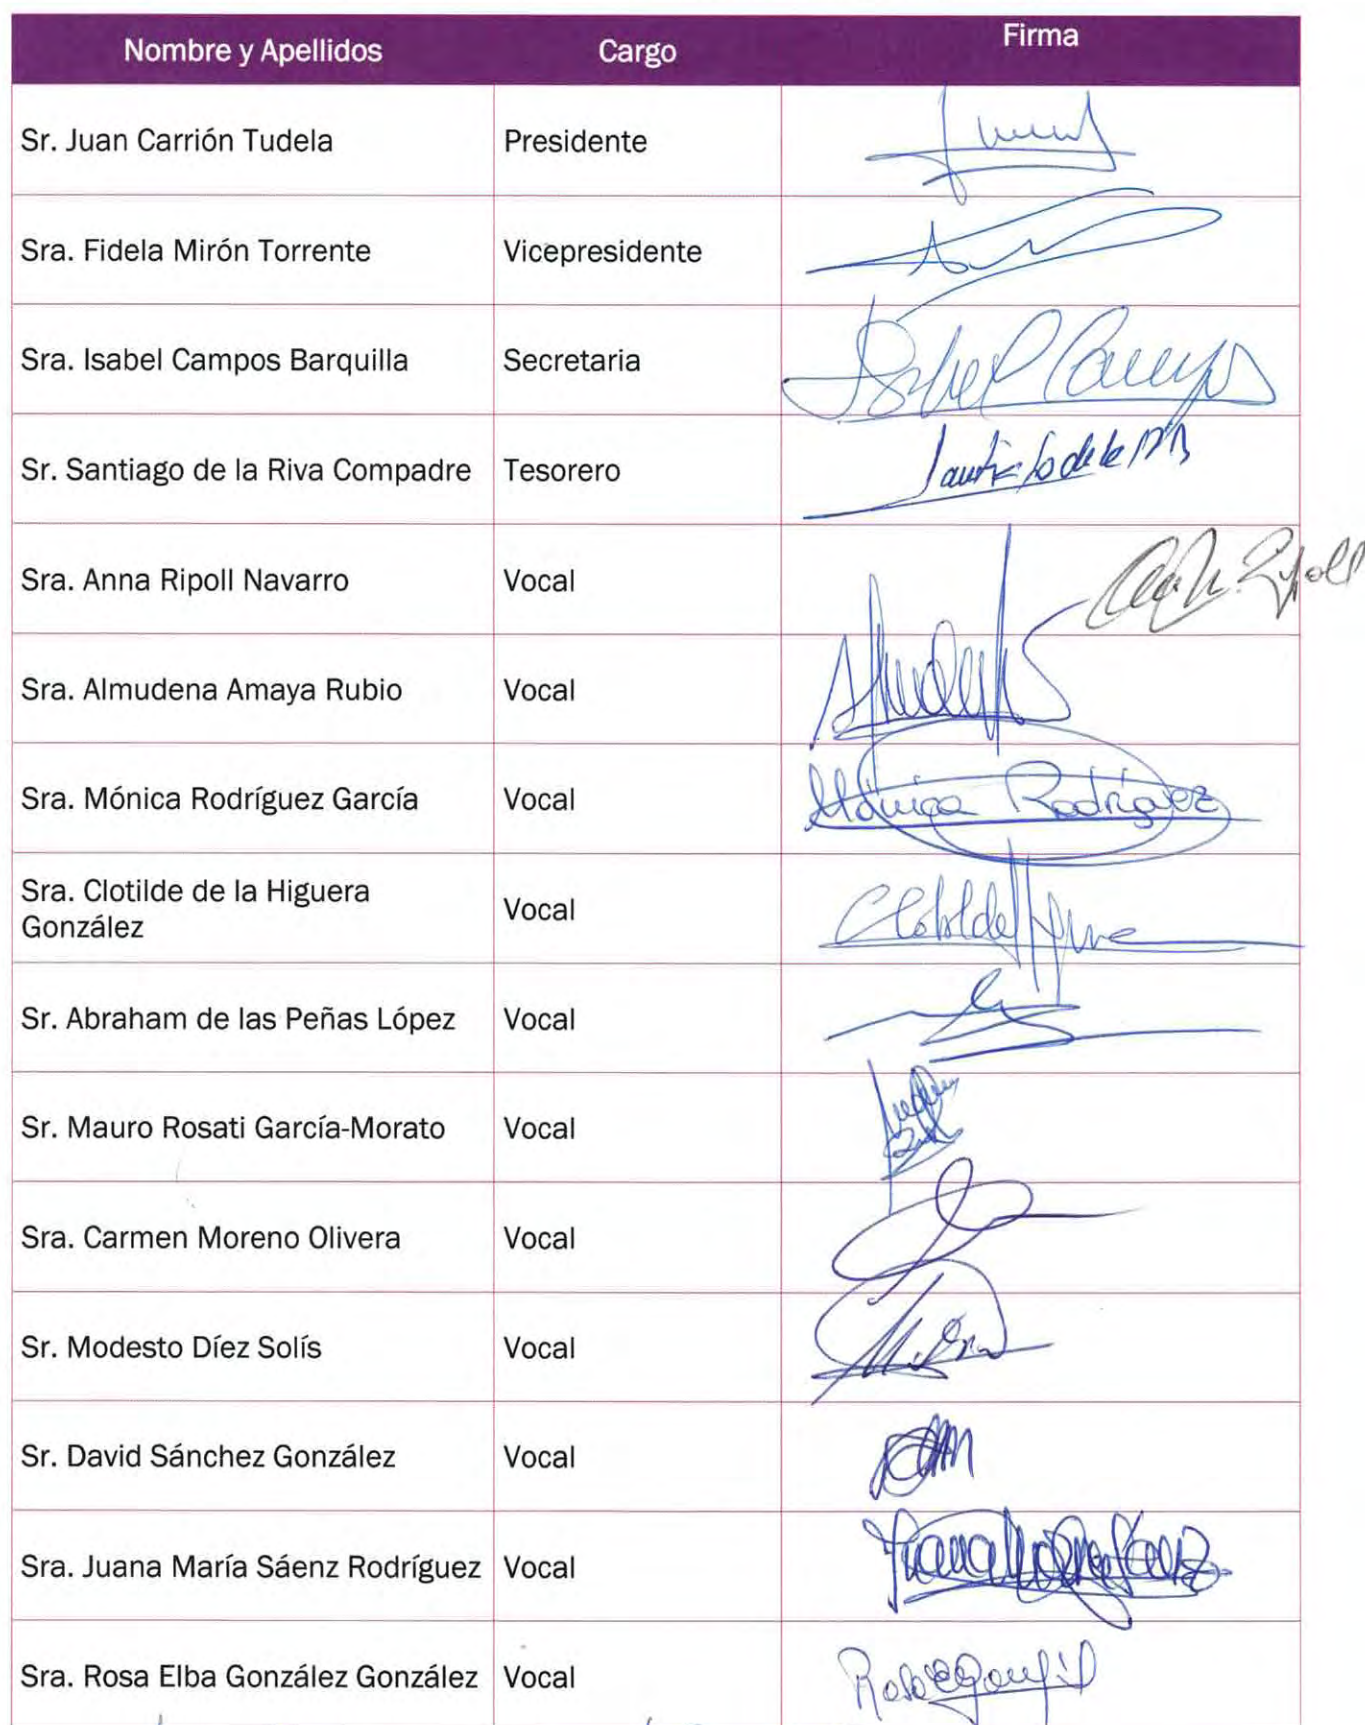 Nombre y Apellidos Cargo Firma
Sr. Juan Carrión Tudela Presidente
Sra. Fidela Mirón Torrente Vicepresidente
Sra. Isabel Campos Barquilla Secretaria Isabel Campos
Sr. Santiago de la Riva Compadre Tesorero
Sra. Anna Ripoll Navarro Vocal Ripoll
Sra. Almudena Amaya Rubio Vocal
Sra. Mónica Rodríguez García Vocal Mónica Rodríguez
Sra. Clotilde de la Higuera
González Vocal Clotilde
Sr. Abraham de las Peñas López Vocal
Sr. Mauro Rosati García-Morato Vocal
Sra. Carmen Moreno Olivera Vocal
Sr. Modesto Díez Solís Vocal
Sr. David Sánchez González Vocal
Sra. Juana María Sáenz Rodríguez Vocal
Sra. Rosa Elba González González Vocal